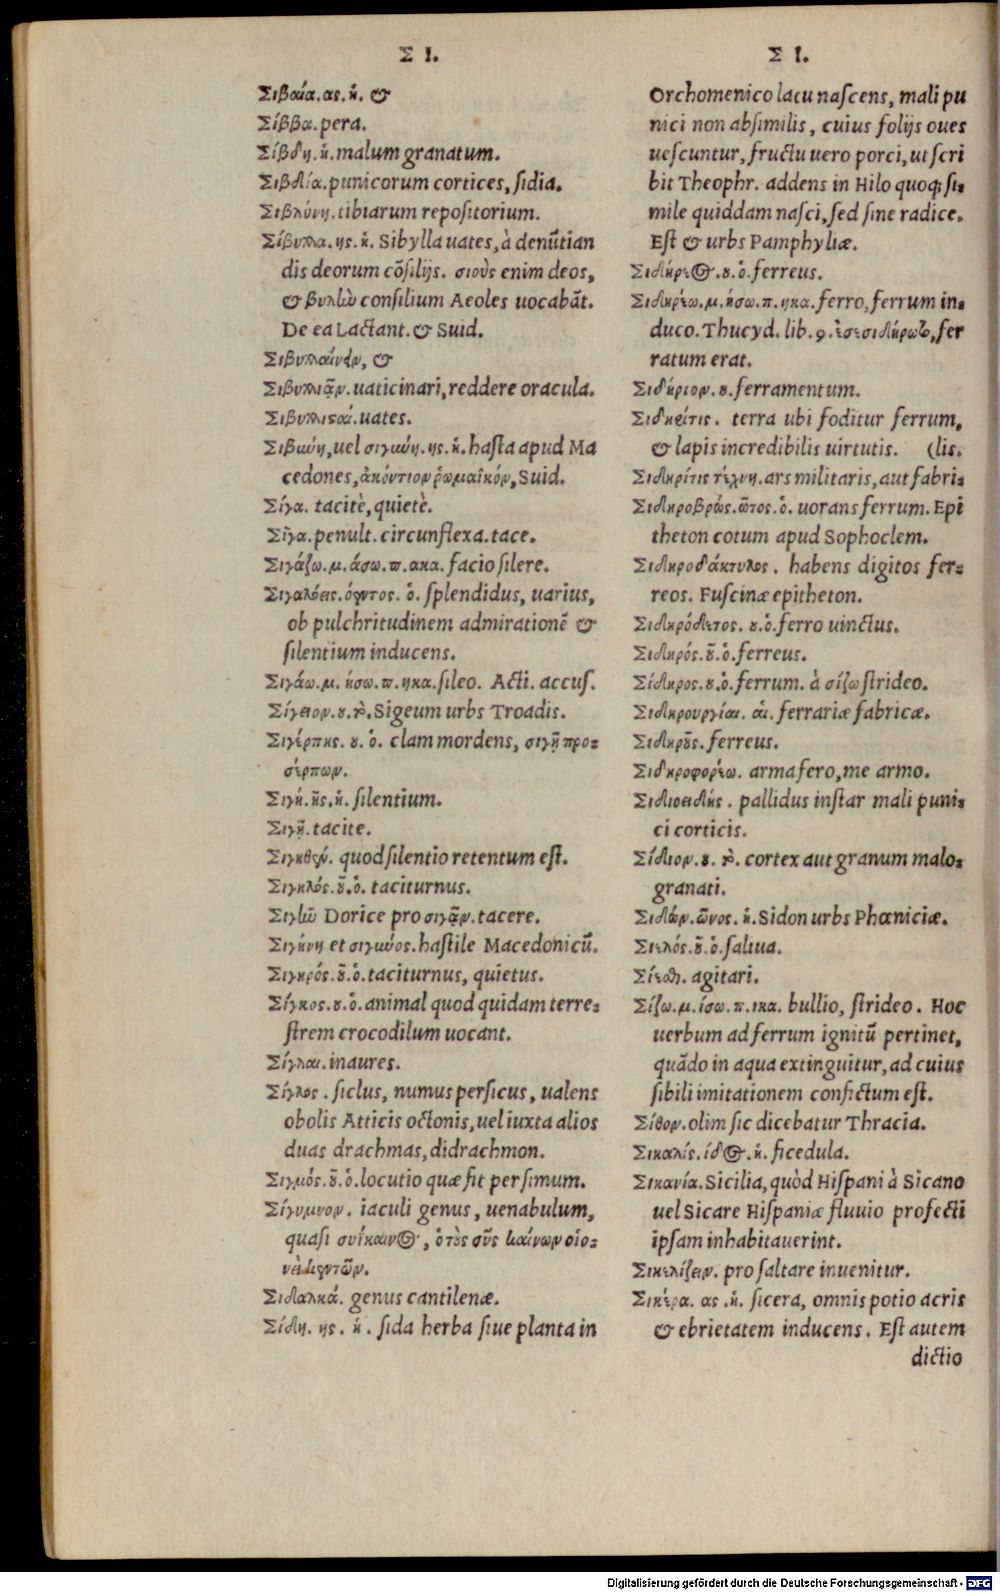 Σ Ι.
Σιβαία. ας. ἡ. &
Σίββα. pera.
Σίβδη. ἡ. malum granatum.
Σιβδία. punicorum cortices, ſidia.
Σιβλύνη. tibiarum repoſitorium.
Σίβυλλα. ης. ἡ. Sibylla uates, à denũtian
dis deorum cõſilijs. σιοὺς enim deos,
& βυλλὼ conſilium Aeoles uocabãt.
De ea Lactant. & Suid.
Σιβυλλαίνειν, &
Σιβυλλιᾷν. uaticinari, reddere oracula.
Σιβυλλιστά. uates.
Σιβωύη, uel σιγωύη. ης. ἡ. haſta apud Ma
cedones, ἀκόντιον ῥωμαϊκόν, Suid.
Σίγα. tacitè, quietè.
Σῖγα. penult. circunflexa. tace.
Σιγάζω. μ. άσω. π. ακα. facio ſilere.
Σιγαλόεις. όεντος. ὁ. ſplendidus, uarius,
ob pulchritudinem admirationẽ &
ſilentium inducens.
Σιγάω. μ. ήσω. π. ηκα. ſileo. Acti. accuſ.
Σίγειον. ου. τὸ. Sigeum urbs Troadis.
Σιγέρπης. ου. ὁ. clam mordens, σιγῇ προ=
σέρπων.
Σιγή. ῆς. ἡ. ſilentium.
Σιγῇ. tacite.
Σιγηθέν. quod ſilentio retentum eſt.
Σιγηλός. οῦ. ὁ. taciturnus.
Σιγῶ Dorice pro σιγᾷν. tacere.
Σιγήνη et σιγωύος. haſtile Macedonicũ.
Σιγηρός. οῦ. ὁ. taciturnus, quietus.
Σίγκος. ου. ὁ. animal quod quidam terre=
ſtrem crocodilum uocant.
Σίγλαι. inaures.
Σίγλος. ſiclus, numus perſicus, ualens
obolis Atticis octonis, uel iuxta alios
duas drachmas, didrachmon.
Σιγμός. οῦ. ὁ. locutio quæ fit per ſimum.
Σίγυμνον. iaculi genus, uenabulum,
quaſi συΐκαινος, ὁ τοὺς σῦς καίνων οἱο=
νεὶ κεντῶν.
Σιδαλκά. genus cantilenæ.
Σίδη. ης. ἡ. ſida herba ſiue planta in
Σ Ι.
Orchomenico lacu naſcens, mali pu
nici non abſimilis, cuius folijs oues
ueſcuntur, fructu uero porci, ut ſcri
bit Theophr. addens in Hilo quoq; ſi=
mile quiddam naſci, ſed ſine radice.
Eſt & urbs Pamphyliæ.
Σιδήρεος. ου. ὁ. ferreus.
Σιδηρέω. μ. ήσω. π. ηκα. ferro, ferrum in=
duco. Thucyd. lib. 9. ἐσεσιδήρωτο, fer
ratum erat.
Σιδήριον. ου. ferramentum.
Σιδηρίτις. terra ubi foditur ferrum,
& lapis incredibilis uirtutis. (lis.
Σιδηρίτις τέχνη. ars militaris, aut fabri=
Σιδηροβρώς. ῶτος. ὁ. uorans ferrum. Epi
theton cotum apud Sophoclem.
Σιδηροδάκτυλος. habens digitos fer=
reos. Fuſcinæ epitheton.
Σιδηρόδετος. ου. ὁ. ferro uinctus.
Σιδηρός. οῦ. ὁ. ferreus.
Σίδηρος. ου. ὁ. ferrum. à σίζω ſtrideo.
Σιδηρουργίαι. αἱ. ferrariæ fabricæ.
Σιδηροῦς. ferreus.
Σιδηροφορέω. arma fero, me armo.
Σιδιοειδής. pallidus inſtar mali puni=
ci corticis.
Σίδιον. ου. τὸ. cortex aut granum malo=
granati.
Σιδών. ῶνος. ἡ. Sidon urbs Phœniciæ.
Σιελός. οῦ. ὁ. ſaliua.
Σίεσθαι. agitari.
Σίζω. μ. ίσω. π. ικα. bullio, ſtrideo. Hoc
uerbum ad ferrum ignitũ pertinet,
quãdo in aqua extinguitur, ad cuius
ſibili imitationem confictum eſt.
Σίθον. olim ſic dicebatur Thracia.
Σικαλίς. ίδος. ἡ. ficedula.
Σικανία. Sicilia, quòd Hiſpani à Sicano
uel Sicare Hiſpaniæ fluuio profecti
ipſam inhabitauerint.
Σικελίζειν. pro ſaltare inuenitur.
Σικέρα. ας. ἡ. ſicera, omnis potio acris
& ebrietatem inducens. Eſt autem
dictio
Digitalisierung gefördert durch die Deutsche Forschungsgemeinschaft - DFG